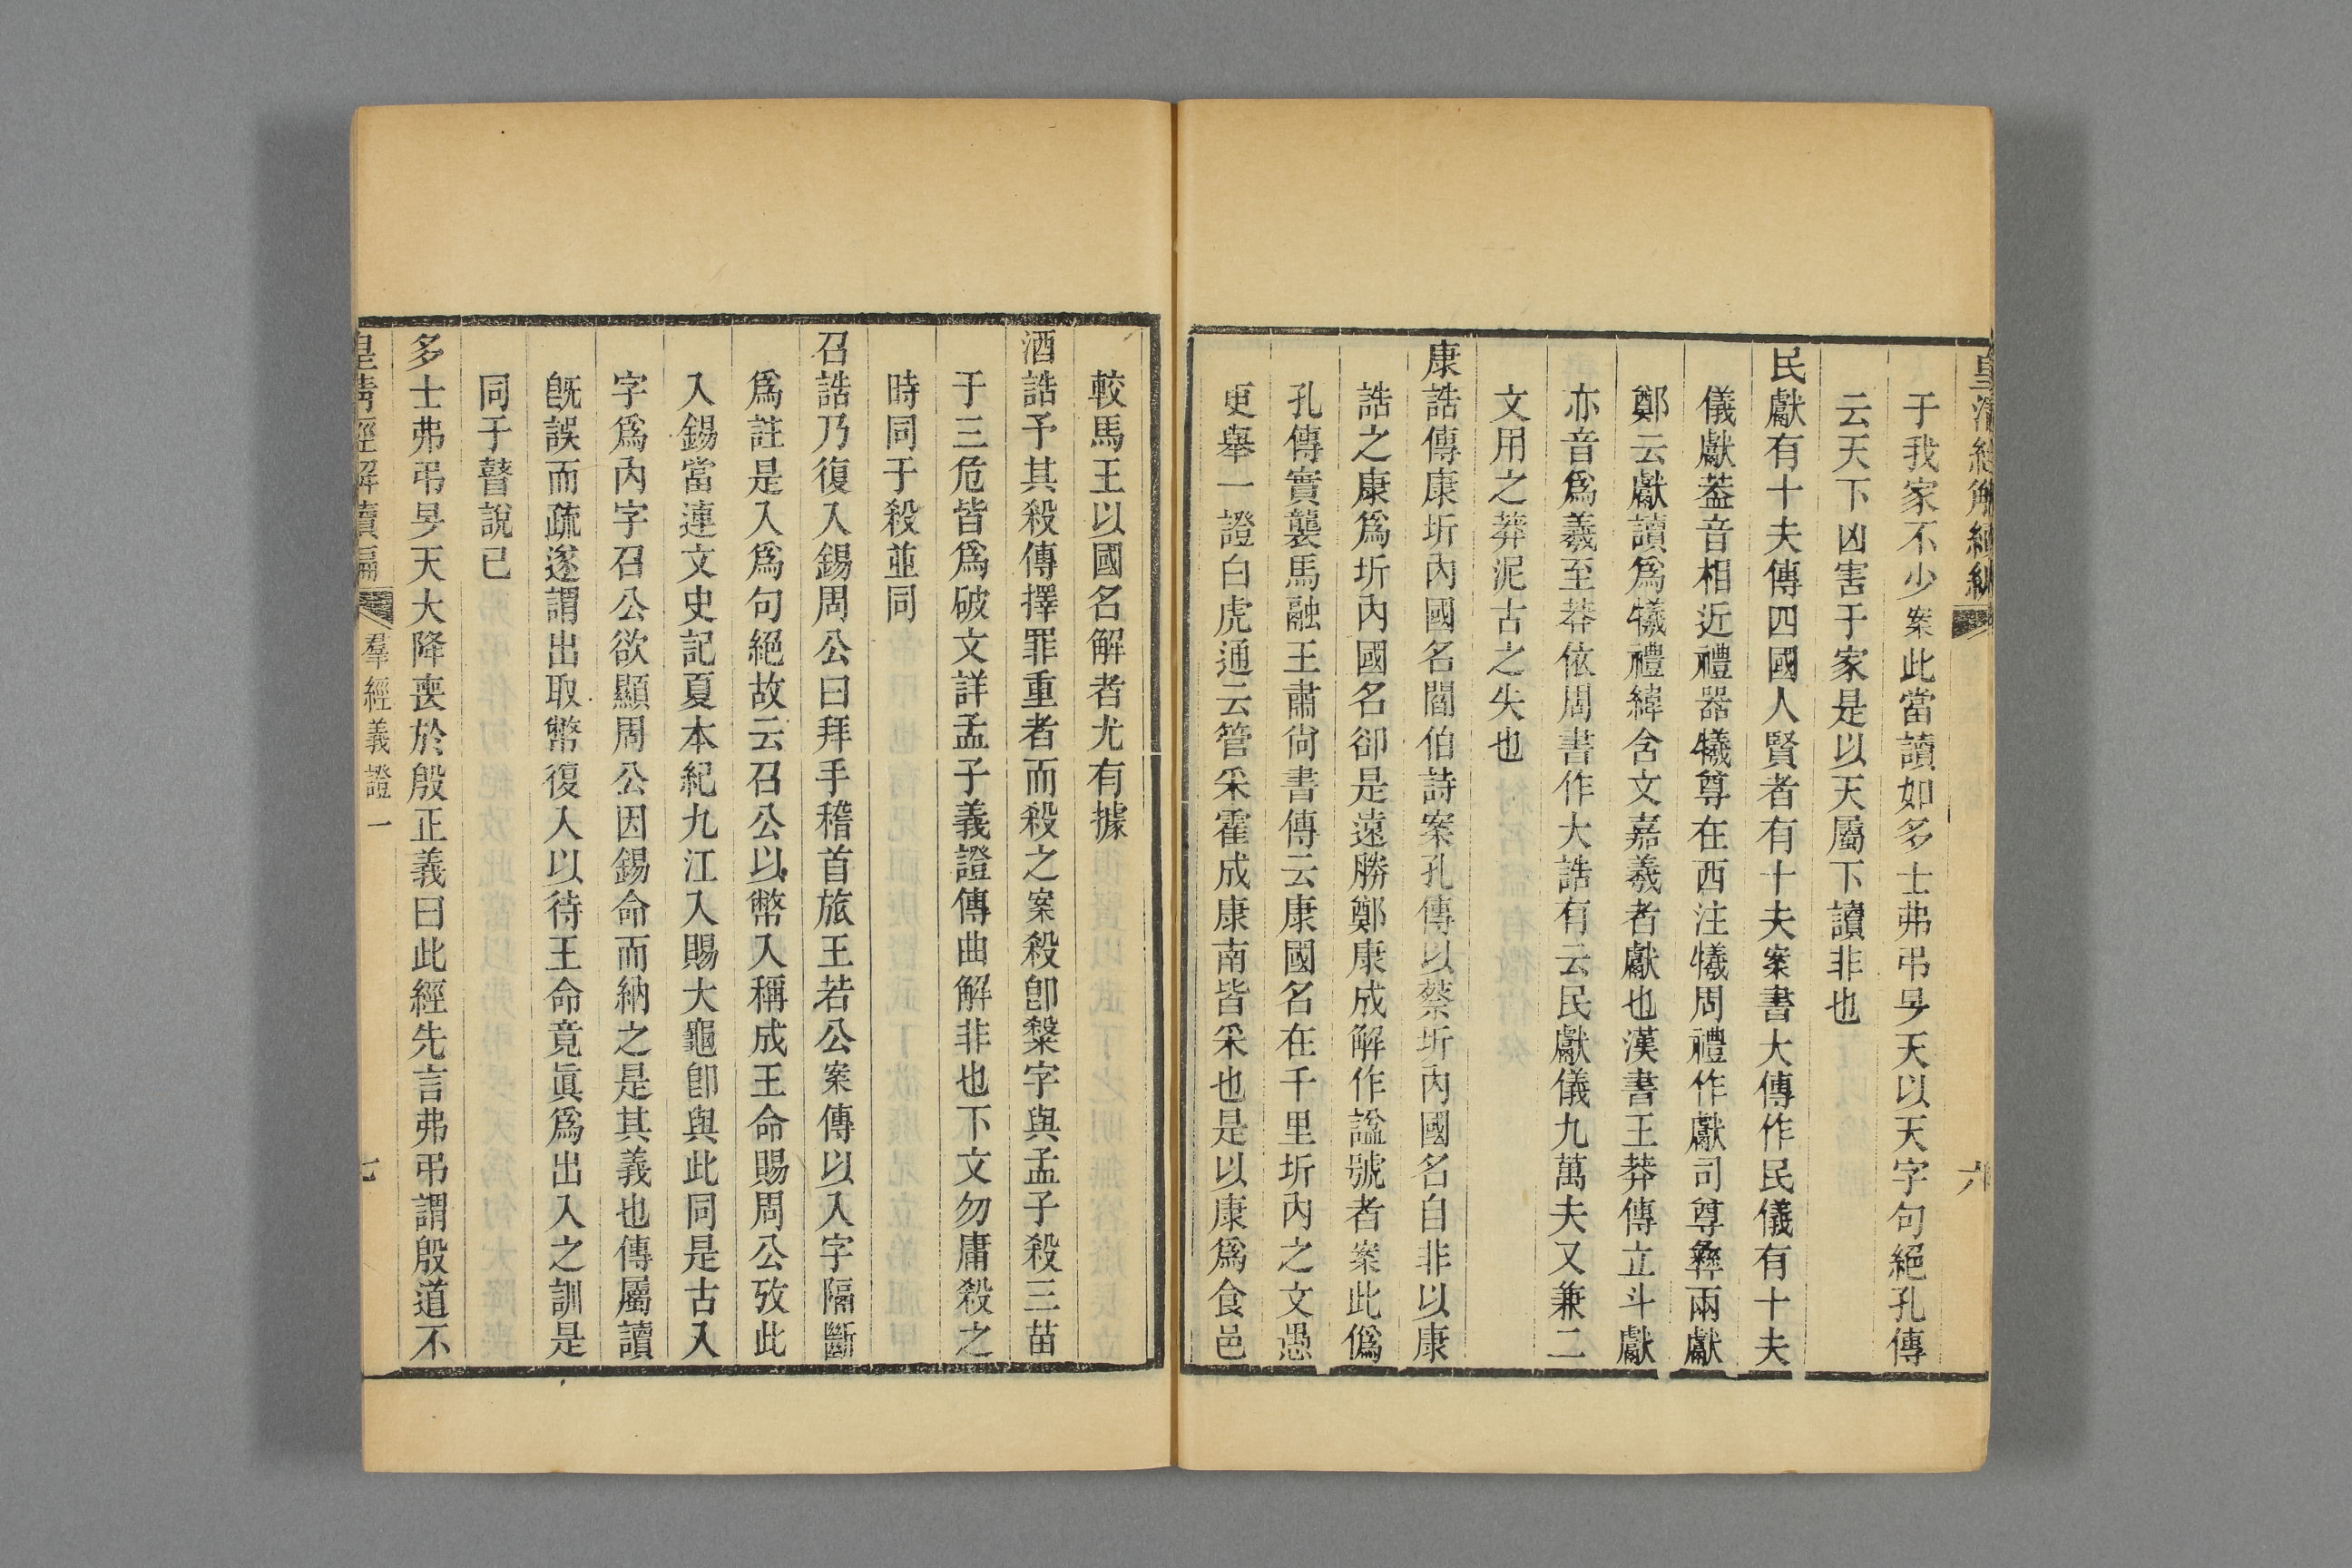 皇清經解續編
六
于我家不少案此當讀如多士弗弔旻天以天字句絕孔傳
云天下凶害于家是以天屬下讀非也
民獻有十夫傳四國人賢者有十夫案書大傳作民儀有十夫
儀獻葢音相近禮器犧尊在西注犧周禮作獻司尊彝兩獻
鄭云獻讀爲犧禮緯含文嘉羲者獻也漢書王莽傳立斗獻
亦音爲羲至莽依周書作大誥有云民獻儀九萬夫又兼二
文用之莽泥古之失也
康誥傳康圻內國名閻伯詩案孔傳以蔡圻內國名自非以康
誥之康爲圻內國名卻是遠勝鄭康成解作諡號者案此僞
孔傳實襲馬融王肅尙書傳云康國名在千里圻內之文愚
更舉一證白虎通云管采霍成康南皆采也是以康爲食邑
較馬王以國名解者尤有據
酒誥予其殺傳擇罪重者而殺之案殺卽糳字與孟子殺三苗
于三危皆爲破文詳孟子義證傳曲解非也下文勿庸殺之
時同于殺並同
召誥乃復入錫周公曰拜手稽首旅王若公案傳以入字隔斷
爲註是入爲句絕故云召公以幣入稱成王命賜周公攷此
入錫當連文史記夏本紀九江入賜大龜卽與此同是古入
字爲內字召公欲顯周公因錫命而納之是其義也傳屬讀
旣誤而疏遂謂出取幣復入以待王命竟眞爲出入之訓是
同于瞽說已
多士弗弔旻天大降喪於殷正義曰此經先言弗弔謂殷道不
皇淸經解續編
羣經義證一
七